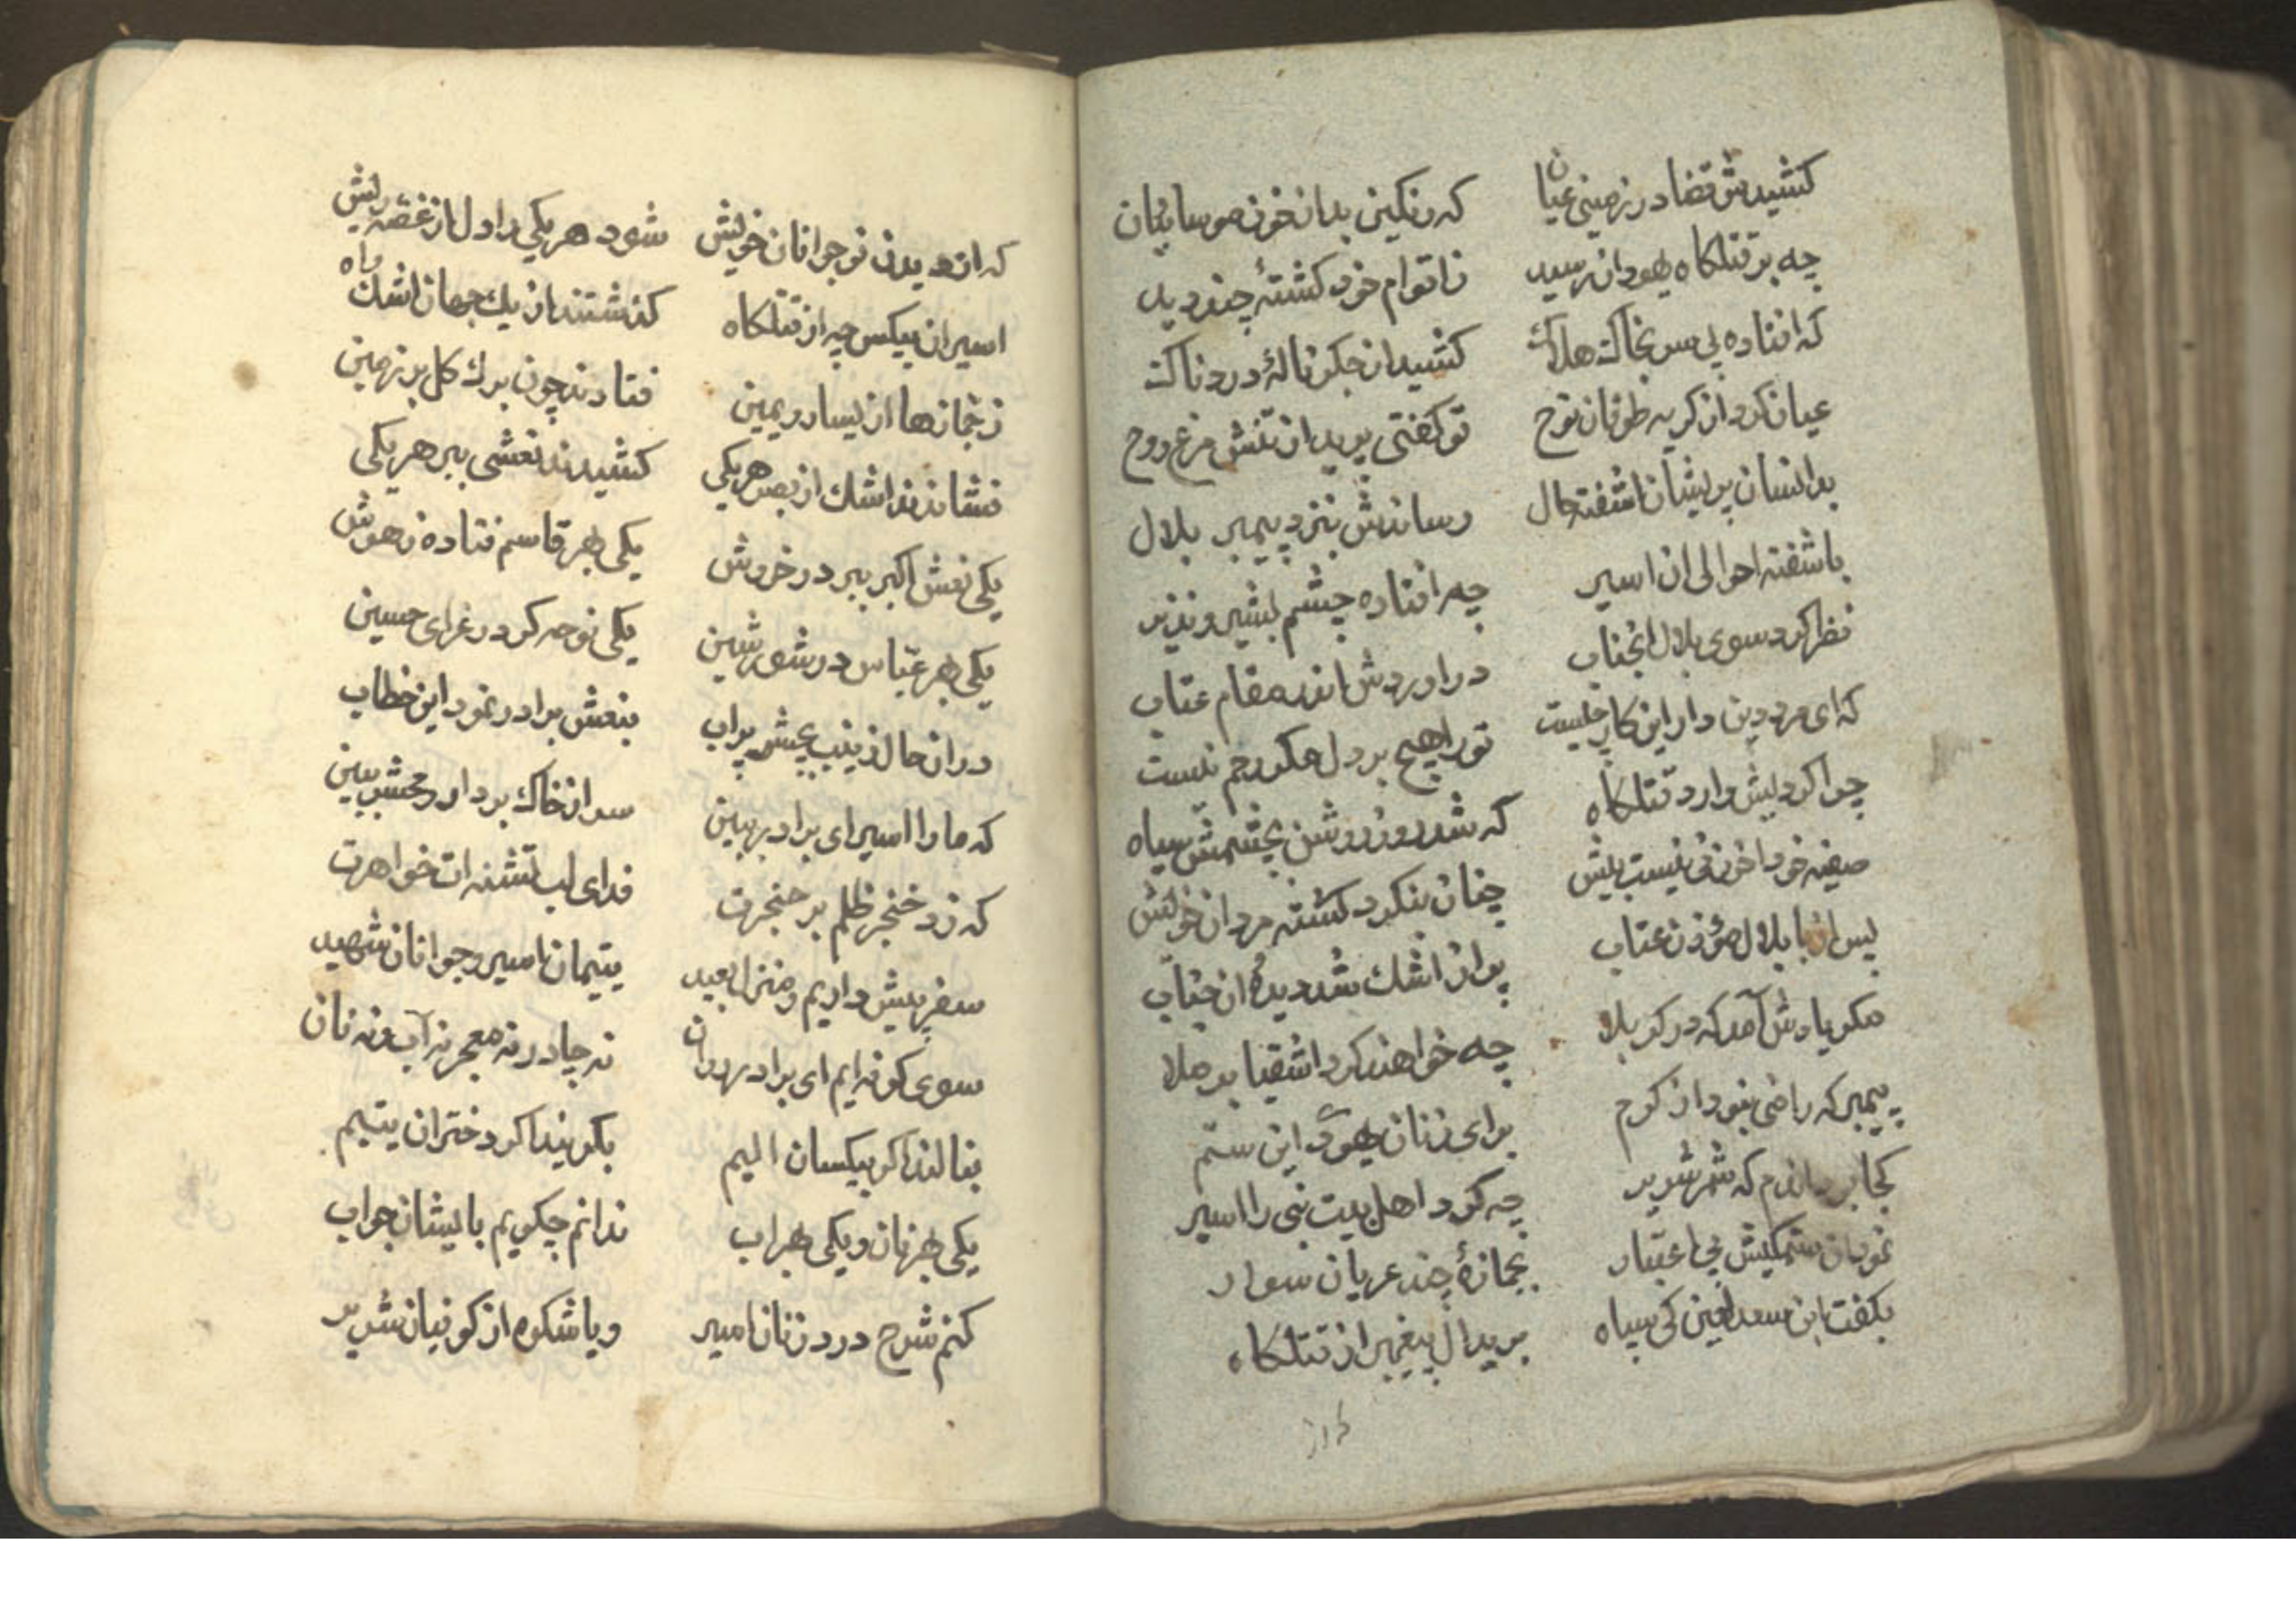 کشیدش قضا در زمینی عیان که رنکین بدان خون موسائیان
چه بر قتلکاه یهودان رسید ز اقوام خود کشتهٔ چند دید
که افتاده بی سر بخاک هلاک کشید از جکر نالهٔ دردناک
عیان کرد از کریه طوفان نوح تو کفتی پرید از تنش مرغ روح
بدانسان پریشان اشفته حال رساندش بنزد پیمبر بلال
باشفته احوالی ان اسیر چه افتاده چشم بشیر و نذیر
نظر کرد سوی بلال انجناب دراوردش اندر مقام عتاب
که ای مرد دین دار این کار چیست تو را هیچ بر دل مکر رحم نیست
چرا کردیش وارد قتلکاه که شد روز روشن بچشمش سیاه
صفیه خود اخر زنی نیست بیش چنان بنکرد کشته مردان خویش
پس ان با بلال مؤذن عتاب پر از اشک شد دیدهٔ ان جناب
مکر یادش آمد که در کربلا چه خواهند کرد اشقیا بر ملا
پیمبر که راضی نبود از کرم برای زنان یهود این ستم
کجا بد که شمر شریر چه کرد اهل بیت نبی را اسیر
نمودان ستمکیش بی اعتبار بجمازهٔ چند عریان سوار
بکفت ابن سعد لعین کی سپاه برید ال پیغمبر از قتلکاه
که از دیدن نوجوانان خویش شود هر یکی را دل از غصه ریش
اسیران بیکس چه از قتلکاه کذشتند از یک جهان اشک و اه
ز جمازها از یسار و یمین فتادند چون برک کل بر زمین
فشاندند اشک از بصر هر یکی کشیدند نعشی ببر هر یکی
یکی نعش اکبر ببر در خروش یکی بهر قاسم فتاده ز هوش
یکی بهر عباس در شور شین یکی نوحه کر در عزای حسین
در ان حال زینب بچشم پراب بنعش برادر نمود این خطاب
که ما را اسیر ای برادر ببین سر از خاک بردار و محشر ببین
که زد خنجر ظلم بر حنجرت فدای لب تشنه ات خواهرت
سفر پیش داریم و منزل بعید یتیمان اسیر و جوانان شهید
سوی کوفه ایم ای برادر روان نه چادر نه معجر نه آب و نه نان
بنالند اکر بیکسان الیم بکویند اکر دختران یتیم
یکی بهر نان و یکی بهر اب ندانم چکویم بایشان جواب
کنم شرح درد زنان اسیر و یا شکوه از کوفیان شریر